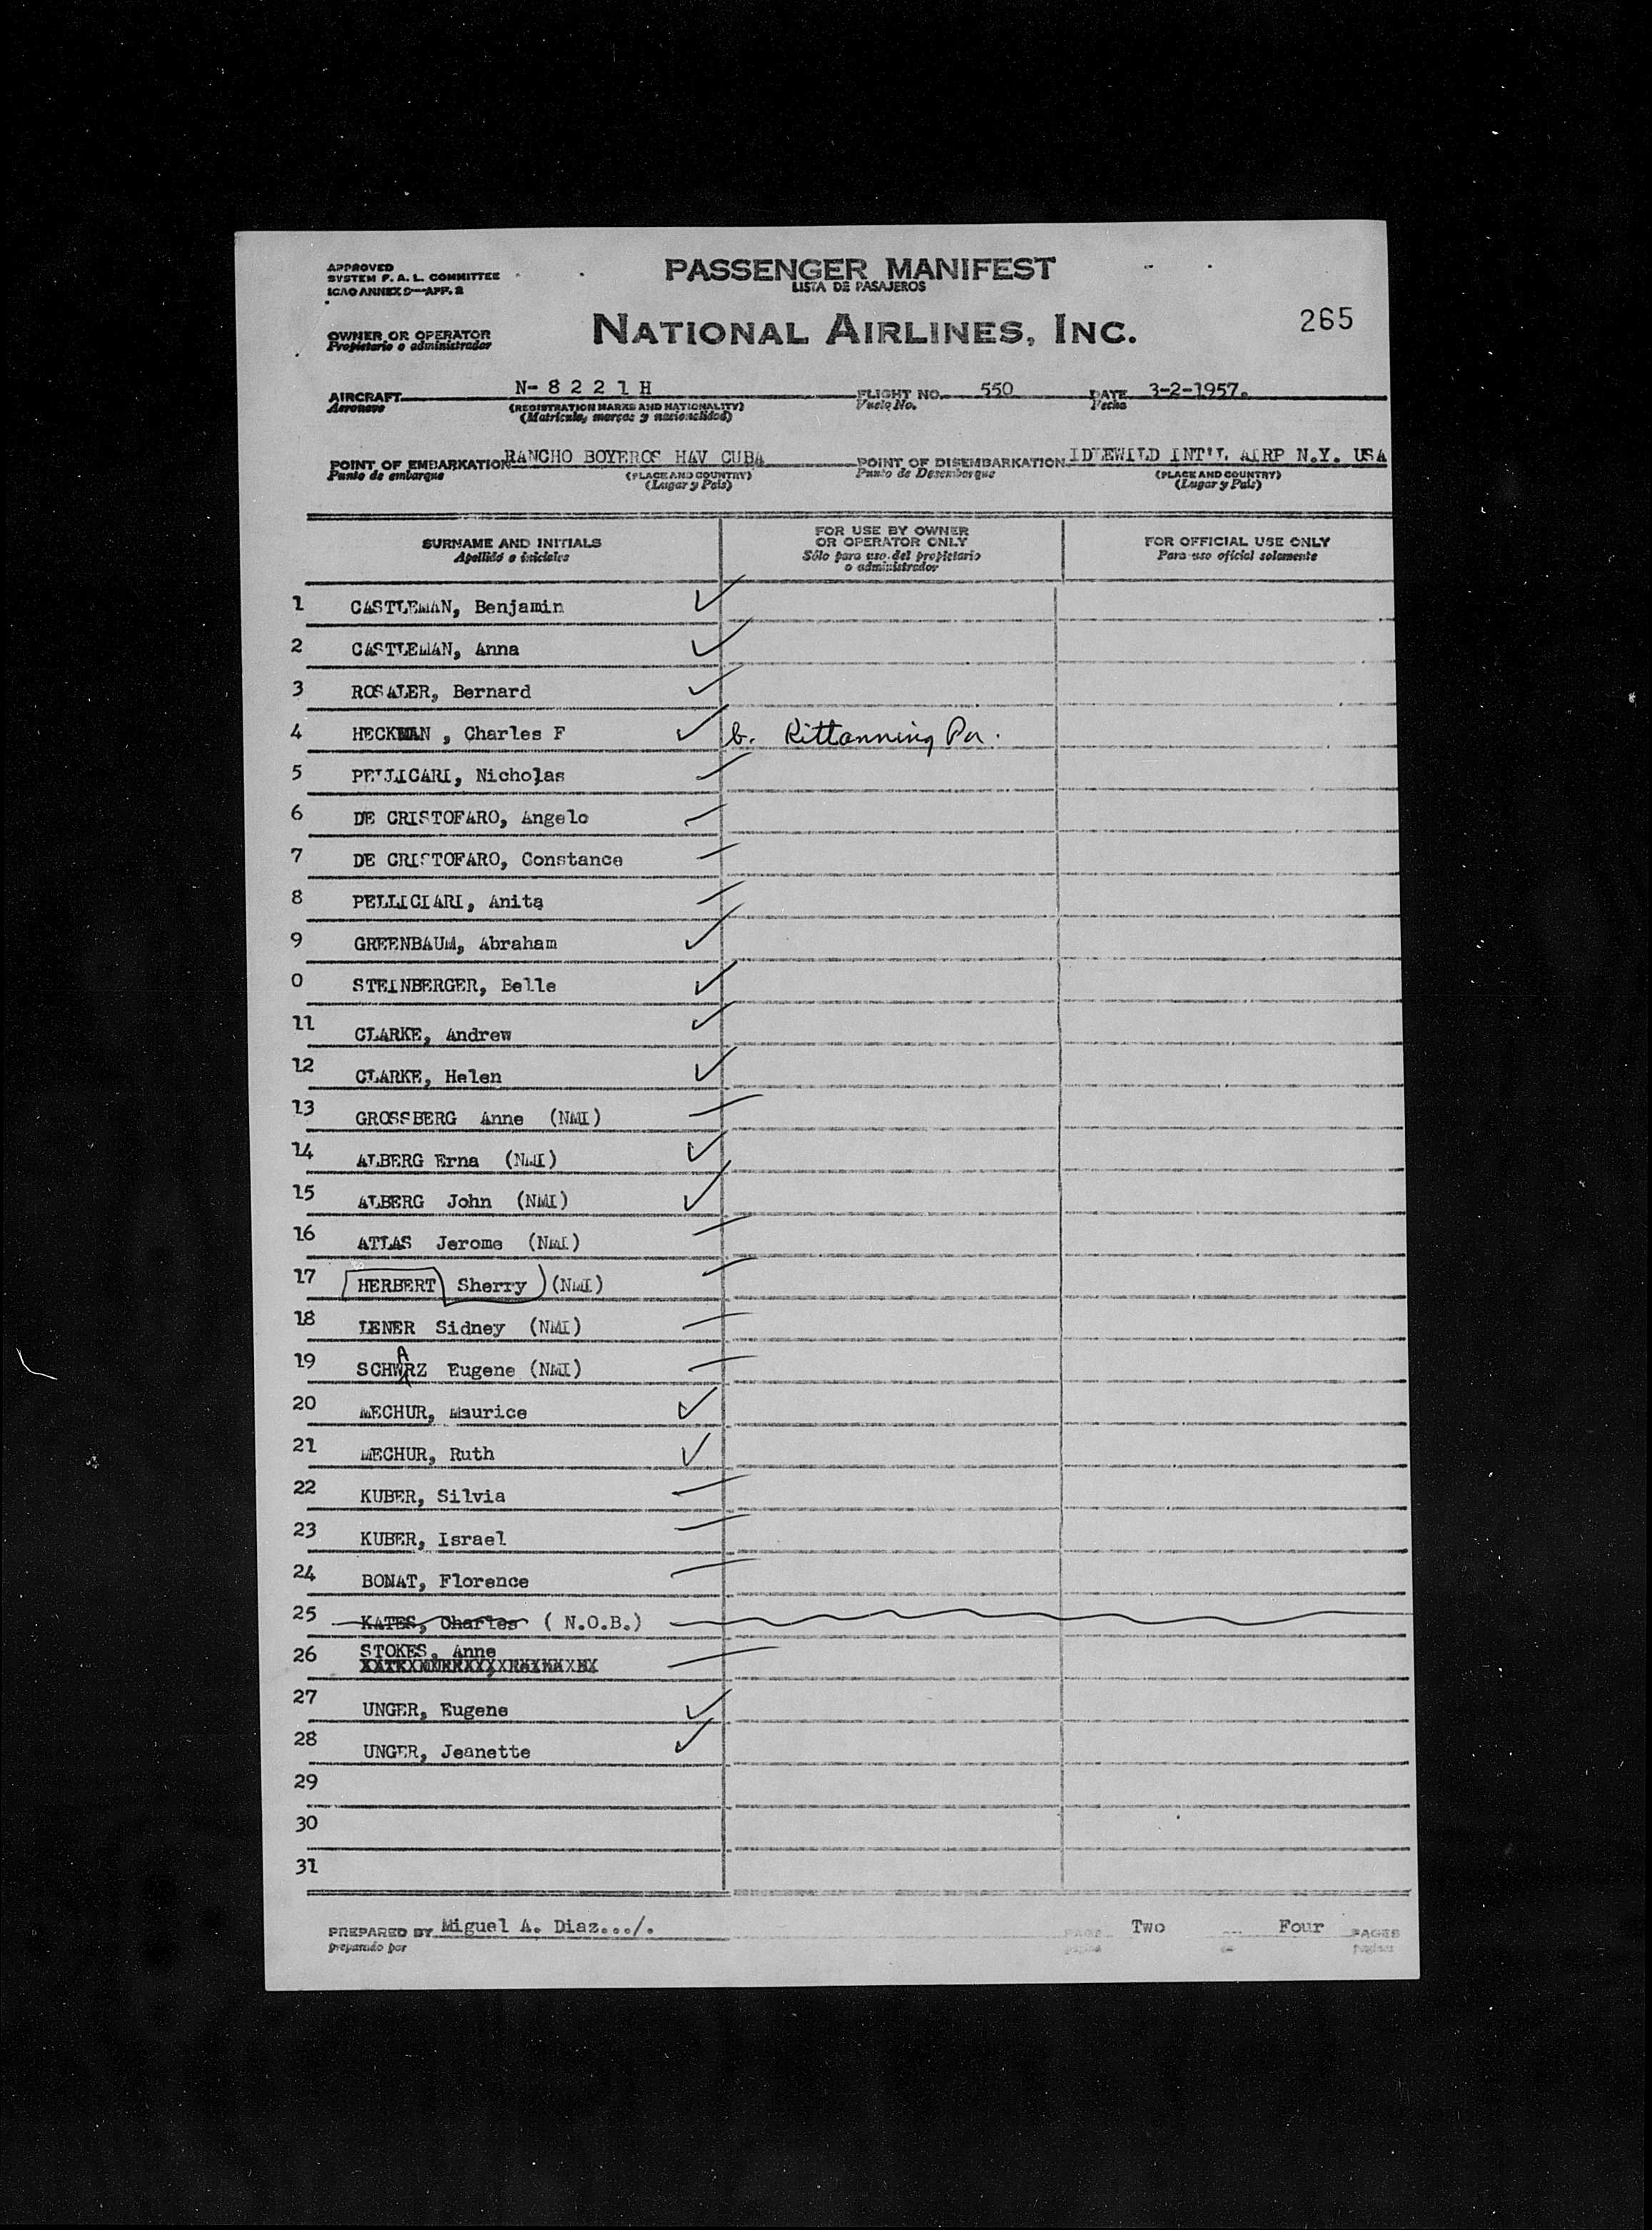 APPROVED
SYSTEM F. A. L. COMMITTEE
ICAO ANNEX 9—APP. 2
PASSENGER MANIFEST
LISTA DE PASAJEROS
265
OWNER OR OPERATOR
Propietario o administrador
NATIONAL AIRLINES, INC.
AIRCRAFT N- 8 2 2 1 H FLIGHT NO. 550 DATE 3-2-1957.
Aeronave (REGISTRATION MARKS AND NATIONALITY) Vuelo No. Fecha
(Matricula, marcas y nacionalidad)
POINT OF EMBARKATION RANCHO BOYEROS HAV CUBA POINT OF DISEMBARKATION IDLEWILD INT'L AIRP N.Y. USA
Punto de embarque (PLACE AND COUNTRY) Punto de Desembarque (PLACE AND COUNTRY)
(Lugar y Pais) (Lugar y Pais)
SURNAME AND INITIALS
Apellido e iniciales
FOR USE BY OWNER
OR OPERATOR ONLY
Sólo para uso del propietario
o administrador
FOR OFFICIAL USE ONLY
Para uso oficial solamente
1 CASTLEMAN, Benjamin
2 CASTLEMAN, Anna
3 ROSALER, Bernard
4 HECKMAN , Charles F b. Kittanning Pa.
5 PELLICARI, Nicholas
6 DE CRISTOFARO, Angelo
7 DE CRISTOFARO, Constance
8 PELLICIARI, Anita
9 GREENBAUM, Abraham
0 STEINBERGER, Belle
11 CLARKE, Andrew
12 CLARKE, Helen
13 GROSSBERG Anne (NMI)
14 ALBERG Erna (NMI)
15 ALBERG John (NMI)
16 ATLAS Jerome (NMI)
17 HERBERT Sherry (NMI)
18 LENER Sidney (NMI)
19 SCHWARZ Eugene (NMI)
20 MECHUR, Maurice
21 MECHUR, Ruth
22 KUBER, Silvia
23 KUBER, Israel
24 BONAT, Florence
25 KATES, Charles ( N.O.B.)
26 STOKES, Anne
27 UNGER, Eugene
28 UNGER, Jeanette
29
30
31
PREPARED BY Miguel A. Diaz.../. PAGE Two Four PAGES
preparado por